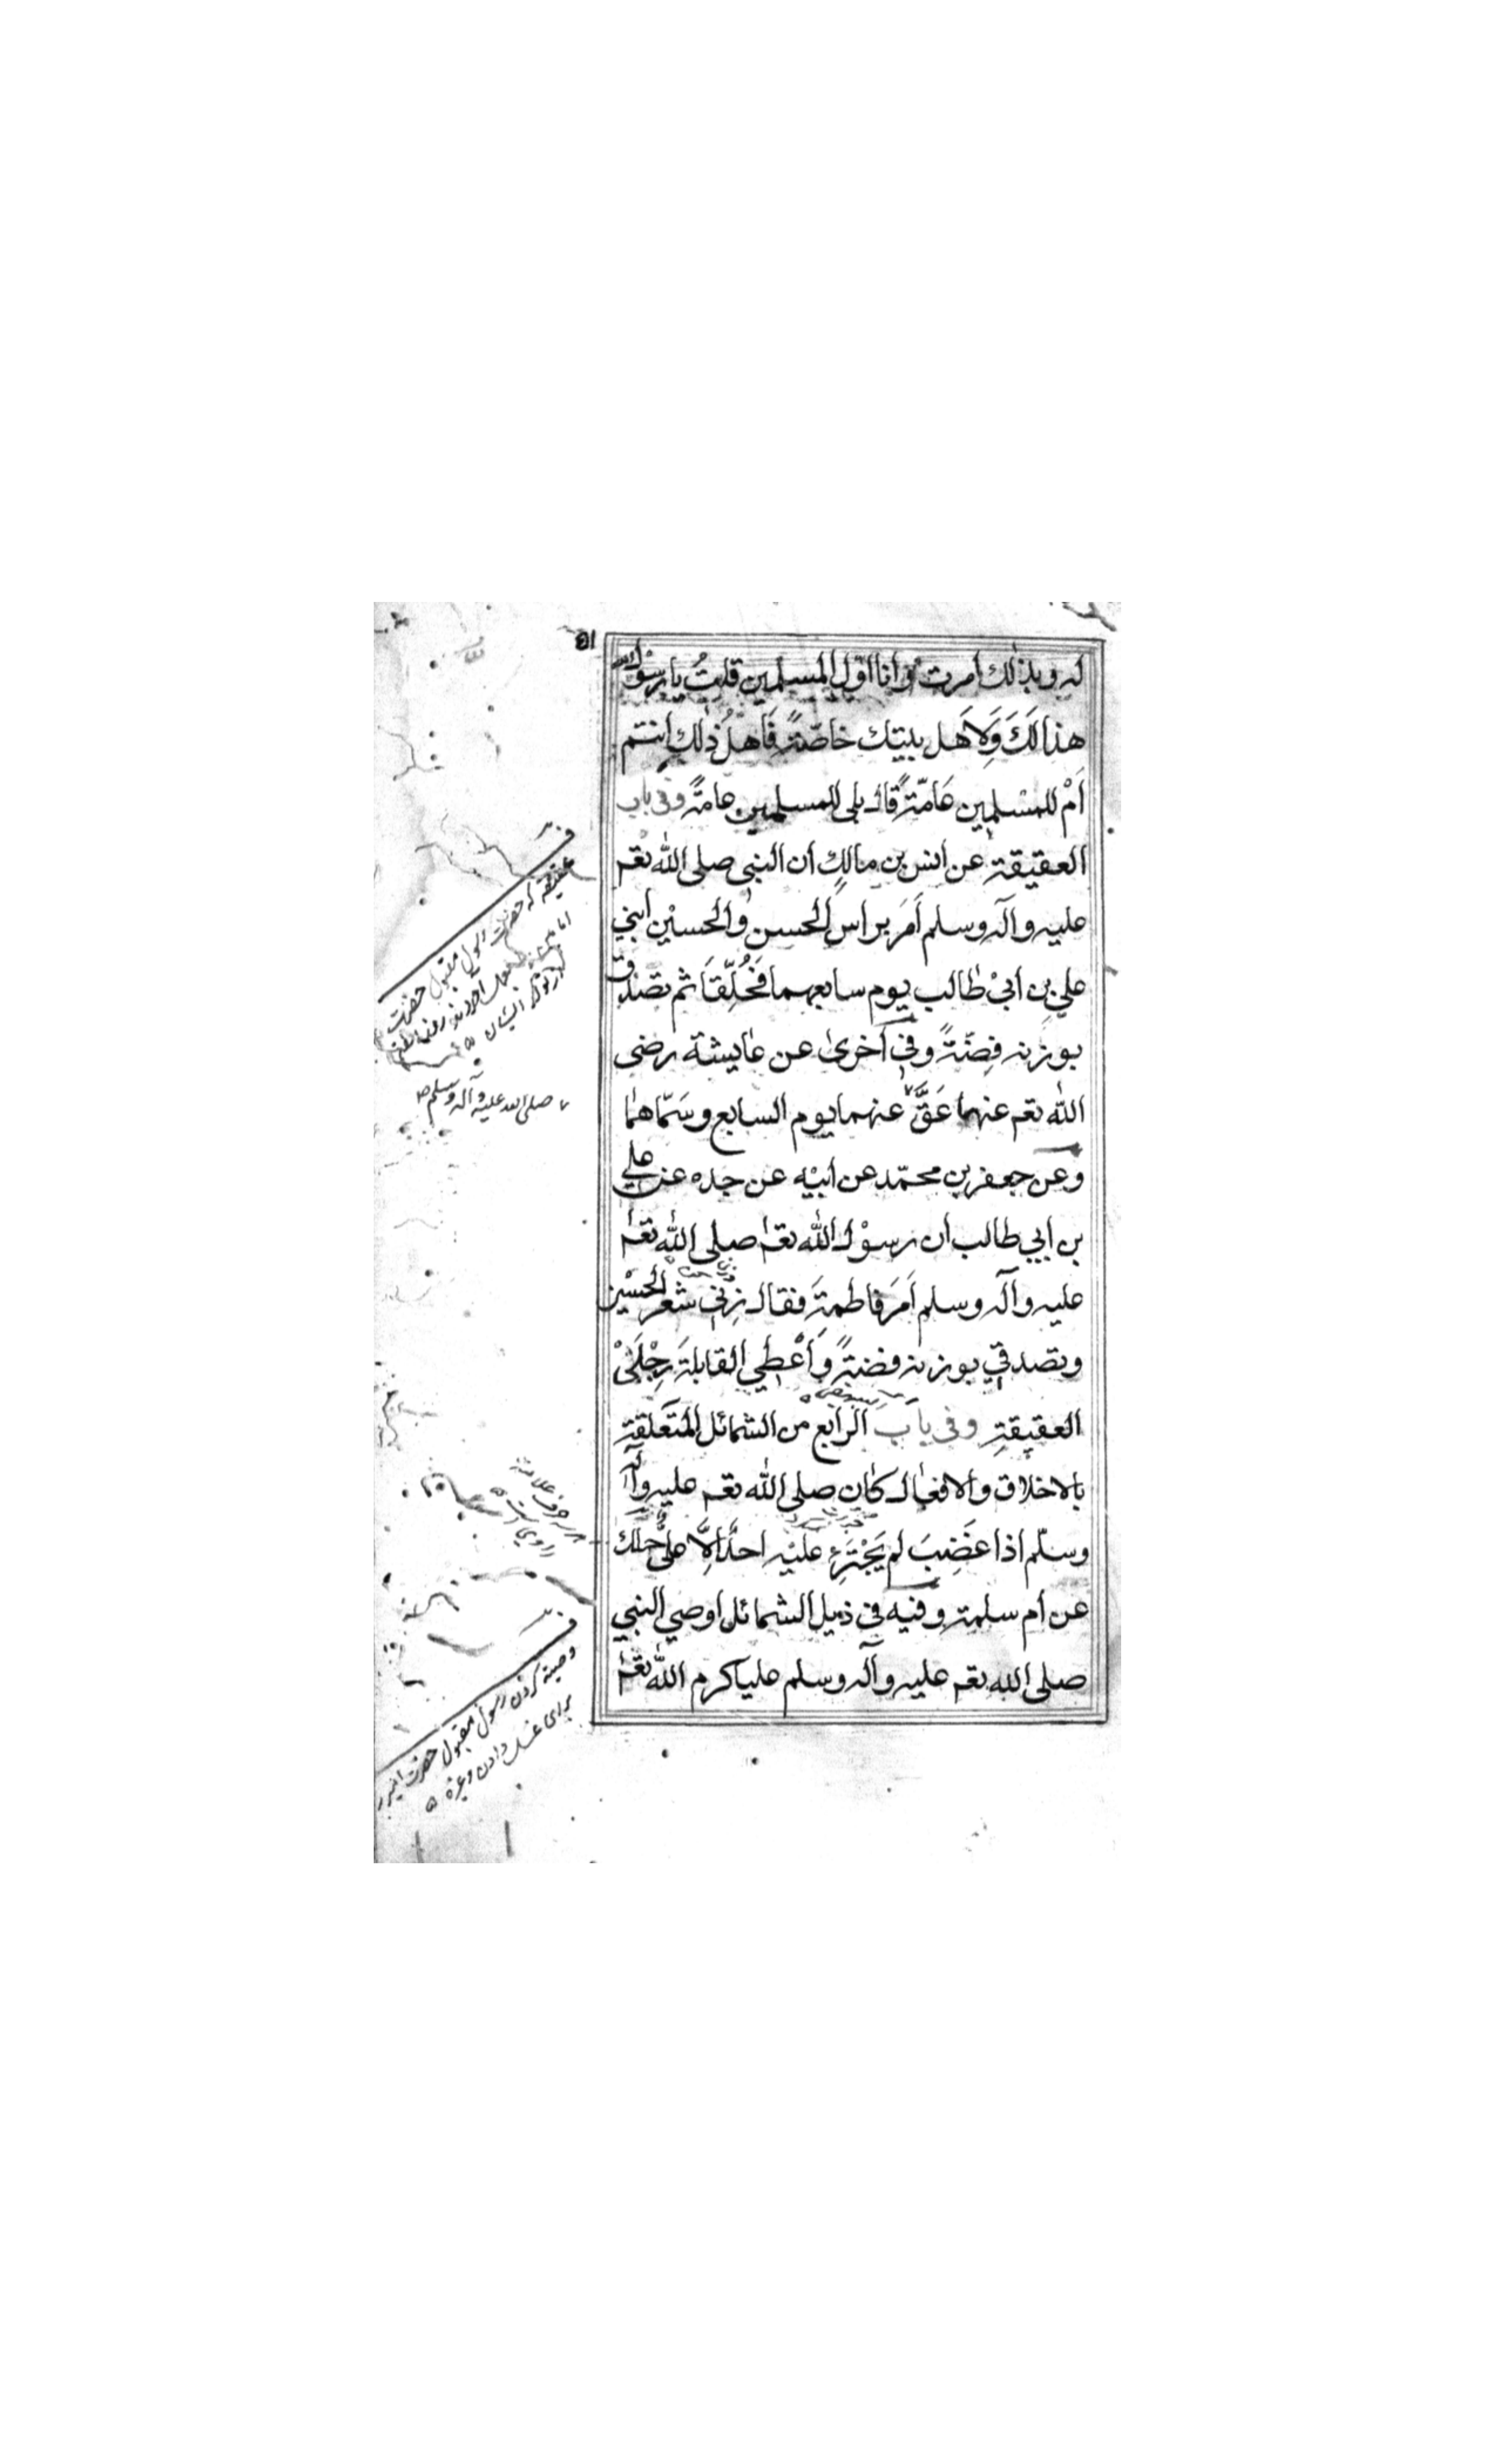 ٥١
له وبذلك امرت وانا اول المسلمين قلتُ يا رسول الله
هذا لَكَ وَلِاَهل بيتك خاصّةً فَاَهلُ ذٰلك انتم
اَمْ للمسْلمين عَامّةً قال بلى للمسلمين عامةً وفى باب
العقيقة عن انس بن مالكٍ ان النبى صلى الله تعـ
عليه وآله وسلم اَمَرَ براس الحسن والحسيْن ابني
علي بن ابيْ طالب يوم سابعهما فَحُلِّقَا ثم تصدق
بوزنه فِضّةً وفى اخرىٰ عن عايشة رضى
الله تعـ عنها عَقَّ ٧ عنهما يوم السابع وسَمّاهما
وعن جعفر بن محمّد عن ابيْه عن جده عن علي
بن ابي طالب ان رسوْل الله تعـ صلى الله تعـ
عليه وآله وسلم اَمَرَ فاطمةَ فقال زِنِي شعْرَ الحسيْن
وتصدقي بوزنه فضةً وَاَعْطِي القابلةَ رِجْلَىْ
العقيقةِ وفى باب الرابع من الشمائل المتَعَلقة
بالاخلاق والافعال كان صلى الله تعـ عليه وآله
وسلّم اذا غَضِبَ لم يَجْتَرِءْ عليْه احدٌ اِلّا علىٌّ حم ك
عن ام سلمة وفيه فى ذيل الشمائل اوصي النبي
صلى الله تعـ عليه وآله وسلم عليا كرم الله تعـ
عقيقه كه حضرت رسول مقبول حضرت
٧ صلى الله عليه وآله وسلم
وصية كردن رسول مقبول حضرت امير
براى غسل دادن وغيره